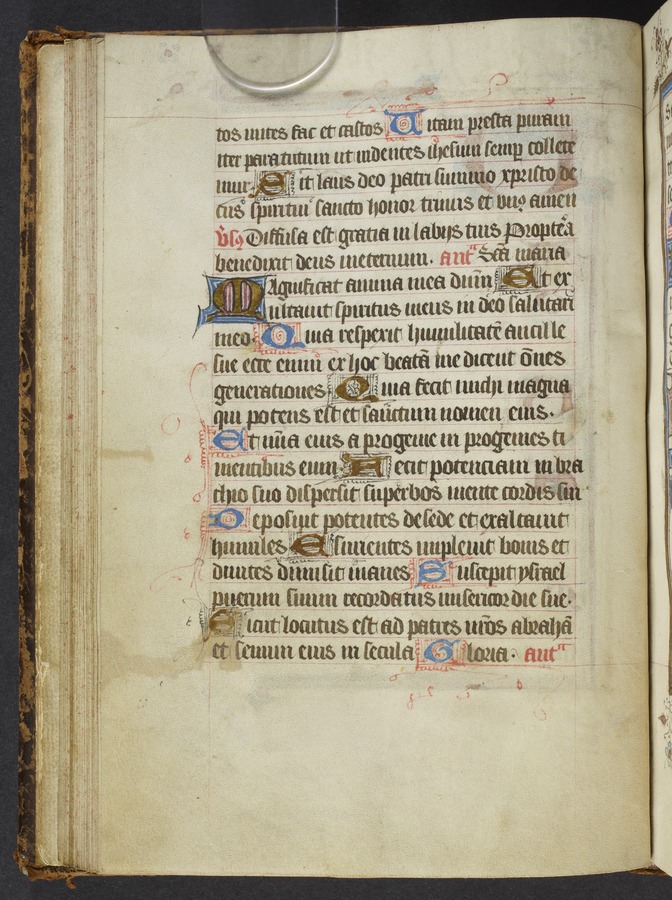 tos mites fac et castos Uitam presta puram
iter para tutum ut uidentes ihesum semp collete
mur. Sit laus deo patri summo xpristo de
cus spiritui sancto honor trinus et vnus amen
vsꝫ Diffusa est gratia in labijs tuis Propteā
benedixit deus in eternum. antᵃ Scā maria
Magnificat anima mea dūm Et ex
ultauit spiritus meus in deo salutari
meo. Quia respexit humilitatē ancille
sue ecce enim ex hoc beatā me dicent ōnes
generationes. Quia fecit michi magna
qui potens est et sanctum nomen eius.
Et mīa eius a progenie in progenies ti
mentibus eum. Fecit potenciam in bra
chio suo dispersit superbos mente cordis sui
Deposuit potentes de sede et exaltauit
humiles Esurientes impleuit bonis et
diuites dimisit inanes Suscepit ysrael
puerum suum recordatus misericordie sue.
Sicut locutus est ad patres nr̄os abrahā
et semini eius in secula Gloria. antᵃ